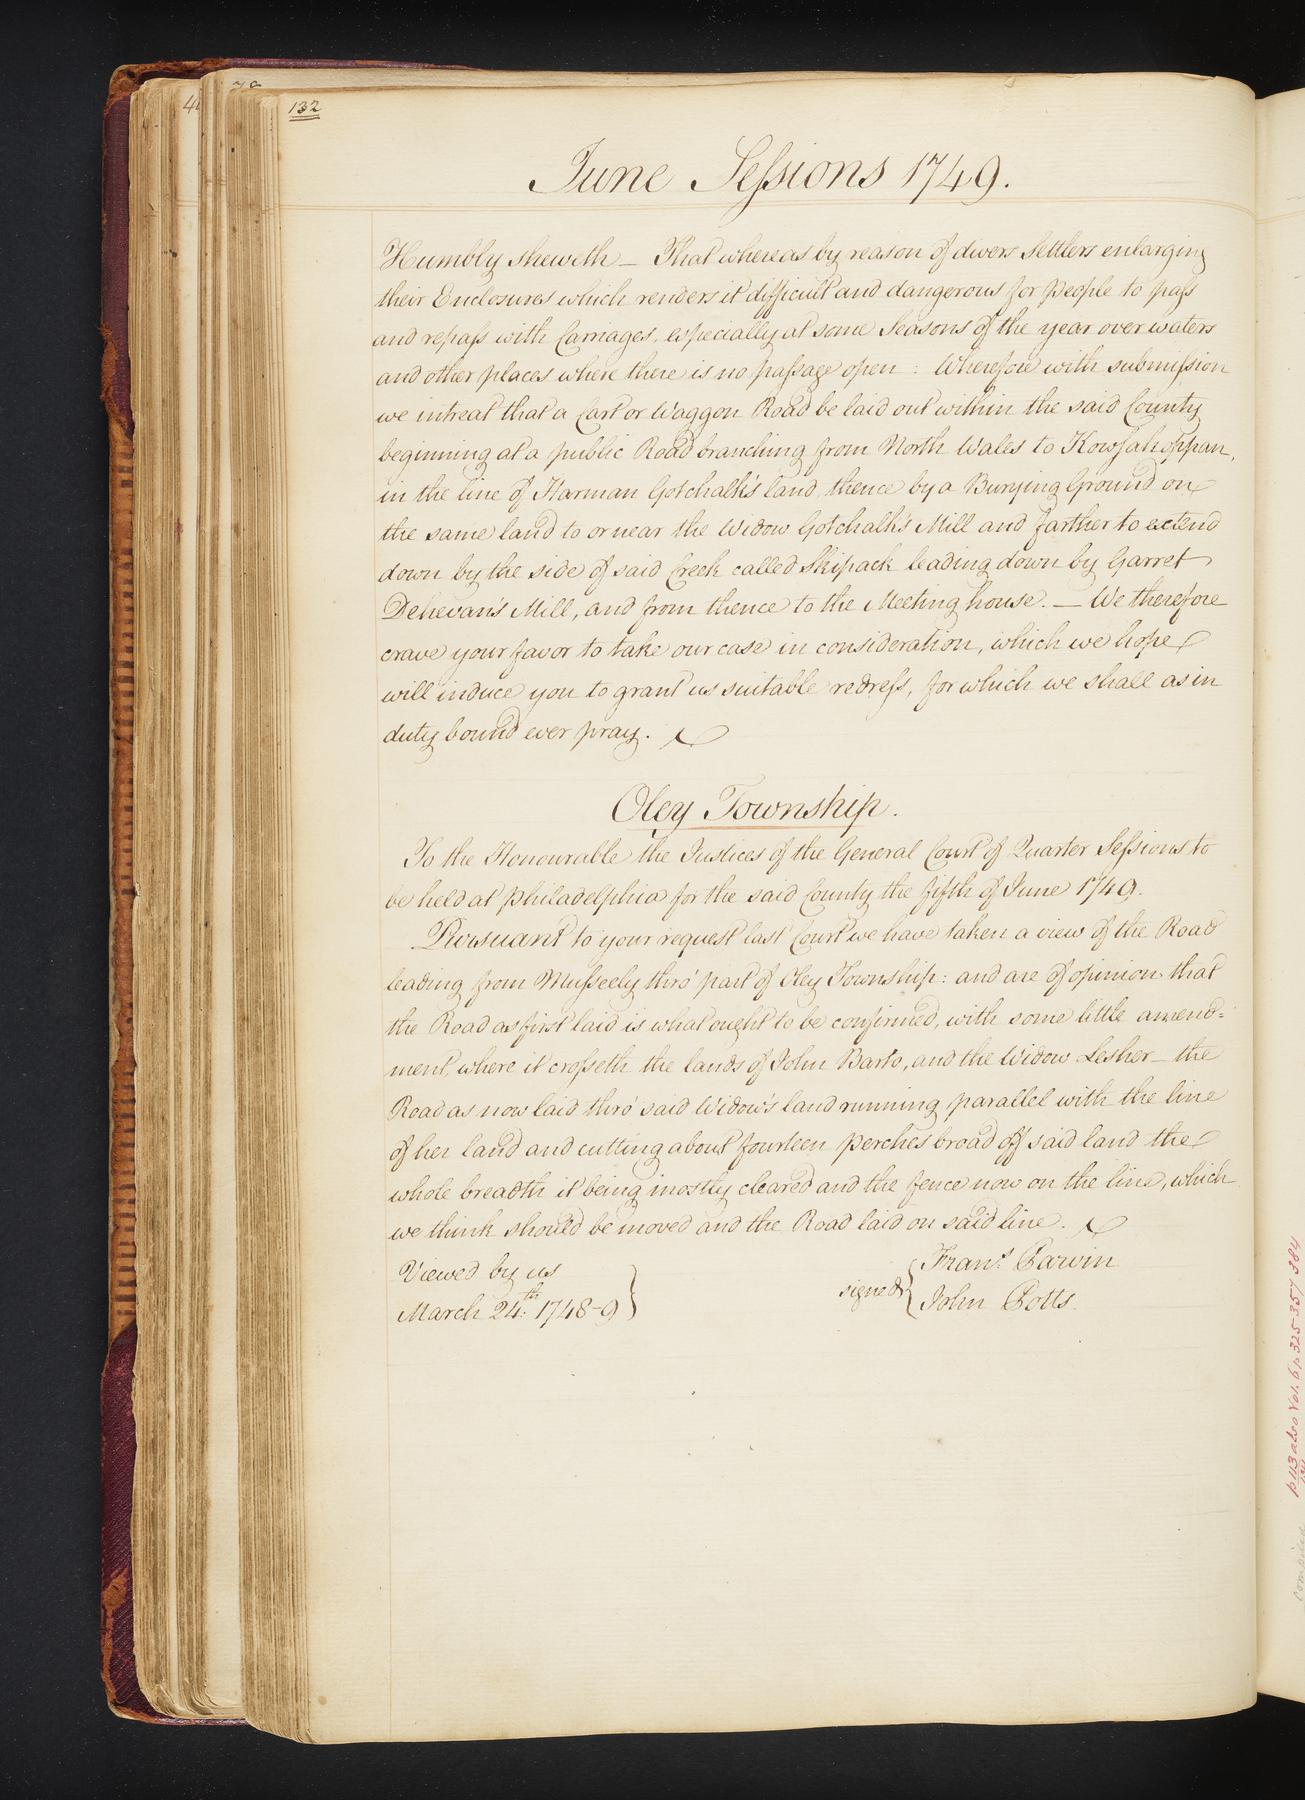 132
June Sessions 1749.
Humbly sheweth — That whereas by reason of divers Settlers enlarging
their Enclosures which renders it difficult and dangerous for people to pass
and repass with Carriages, especially at some Seasons of the year over waters
and other places where there is no passage open : Wherefore with submission
we intreat that a Cart or Waggon Road be laid out within the said County
beginning at a public Road branching from North Wales to Kowsahoppan,
in the line of Harman Gotchalk's land, thence by a Burying Ground on
the same land to or near the Widow Gotchalk's Mill and farther to extend
down by the side of said Creek called Skipack leading down by Garret
Dehevan's Mill, and from thence to the Meeting house. — We therefore
crave your favor to take our case in consideration, which we hope
will induce you to grant us suitable redress, for which we shall as in
duty bound ever pray.
Oley Township.
To the Honourable the Justices of the General Court of Quarter Sessions to
be held at Philadelphia for the said County the fifth of June 1749.
Pursuant to your request last Court we have taken a view of the Road
leading from Musseely thro' part of Oley Township: and are of opinion that
the Road as first laid is what ought to be confirmed, with some little amend=
ment, where it crosseth the lands of John Barto, and the Widow Lesher — the
Road as now laid thro' said Widow's land running parallel with the line
of her land and cutting about fourteen perches broad off said land the
whole breadth it being mostly cleared and the fence now on the line, which
we think should be moved and the Road laid on said line.
Viewed by us
March 24th 1748-9
signed
Frans. Parvin
John Potts.
p 113 also Vol. 6 p 325-357 384